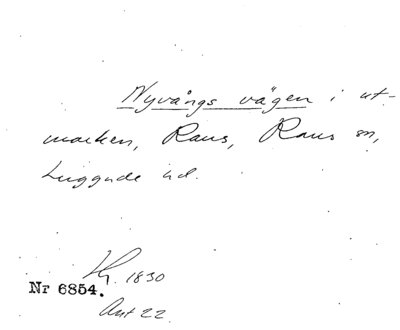 Nyvångs vägen i ut-
marken, Raus, Raus sn,
Luggude hd.
Hg. 1830
Nr 6854.
Ant 22